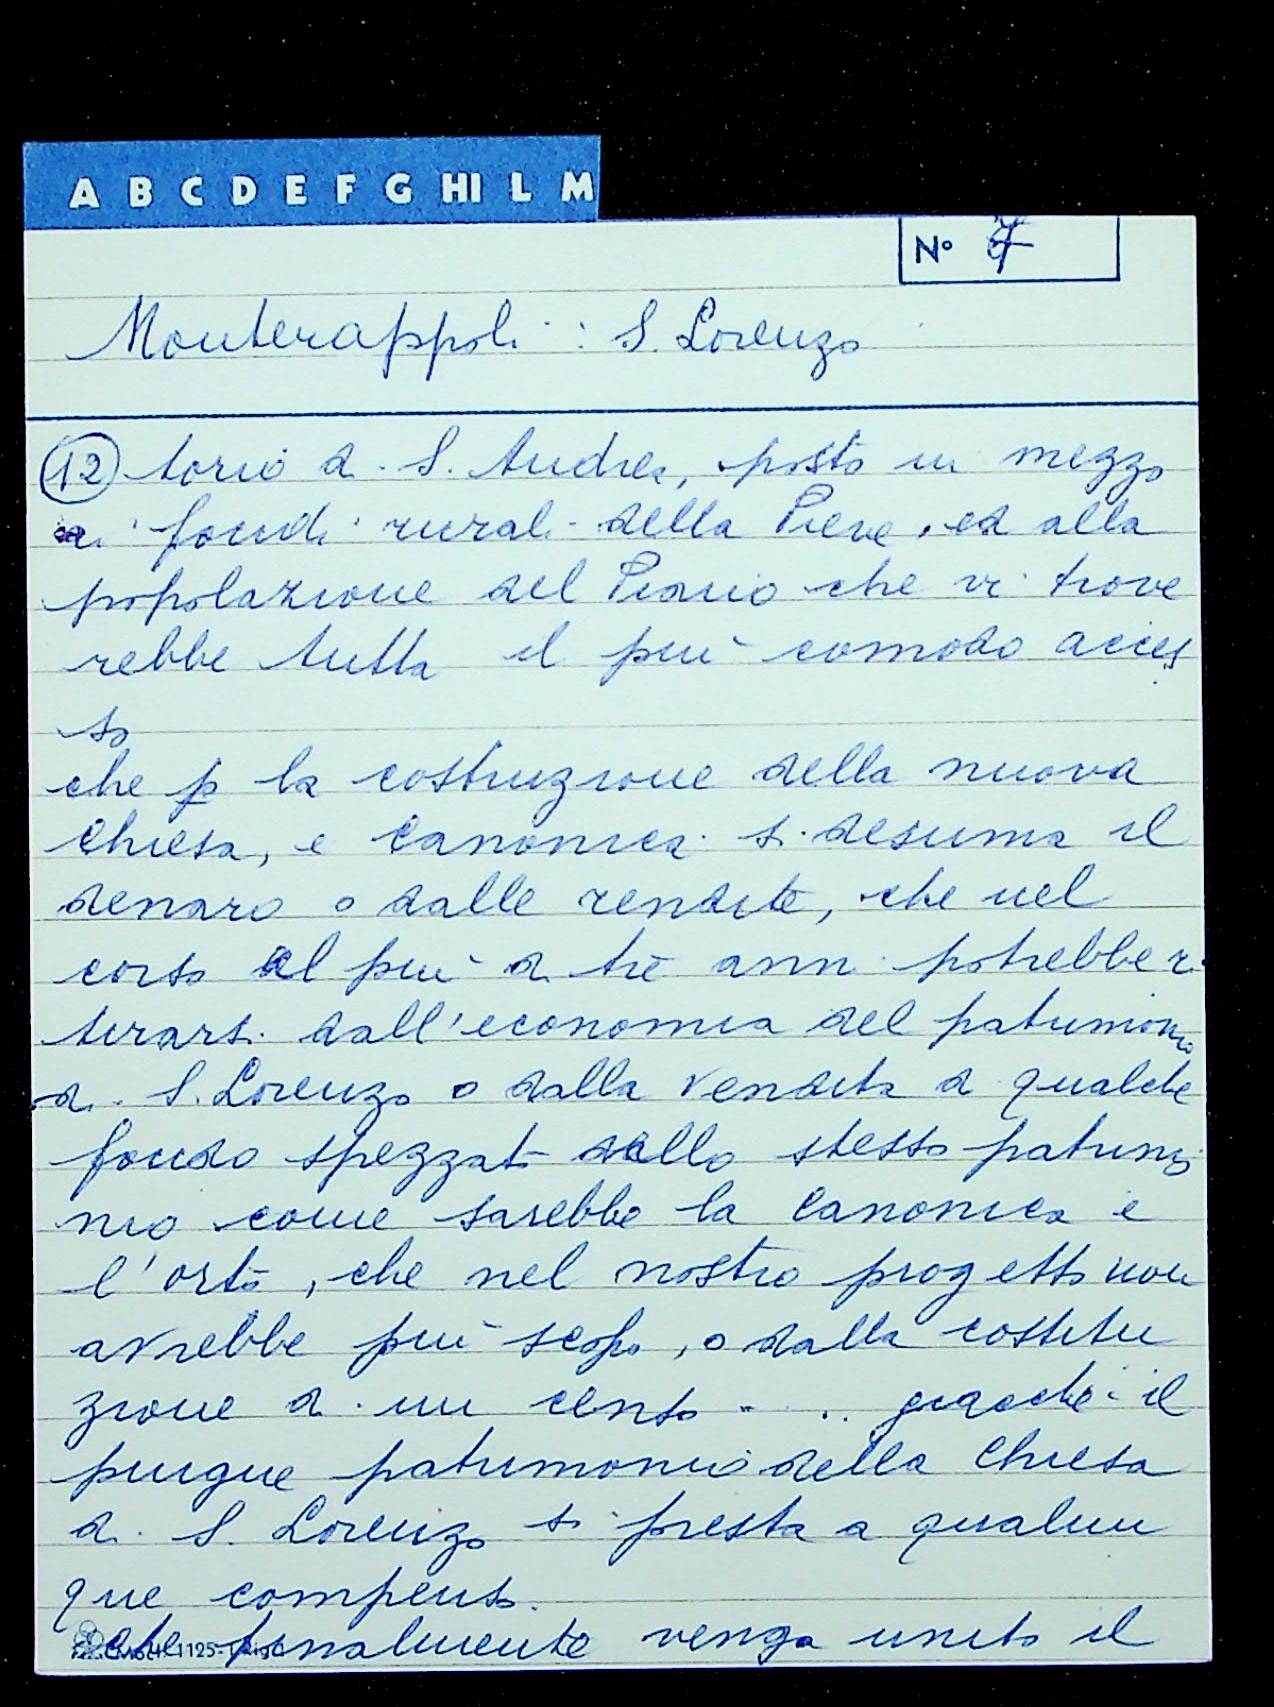 A B C D E F G HI L M
N° 7
Monterappoli : S. Lorenzo
(12) torio di S. Andrea, posto in mezzo
ai fondi rurali della Pieve, ed alla
popolazione del Piano che vi trove
rebbe tutta il più comodo acces
so
che p la costruzione della nuova
Chiesa, e Canonica si desuma il
denaro o dalle rendite, che nel
corso al più di tre anni potrebbe ri
tirarsi dall'economia del patrimonio
di S. Lorenzo o dalla vendita di qualche
fondo spezzato dello stesso patrimo
nio come sarebbe la Canonica e
l'orto, che nel nostro progetto non
avrebbe più scopo, o dalla costitu
zione di un censo - .. giacchè il
pingue patrimonio della Chiesa
di S. Lorenzo si presta a qualun
que compenso.
che finalmente venga unito il